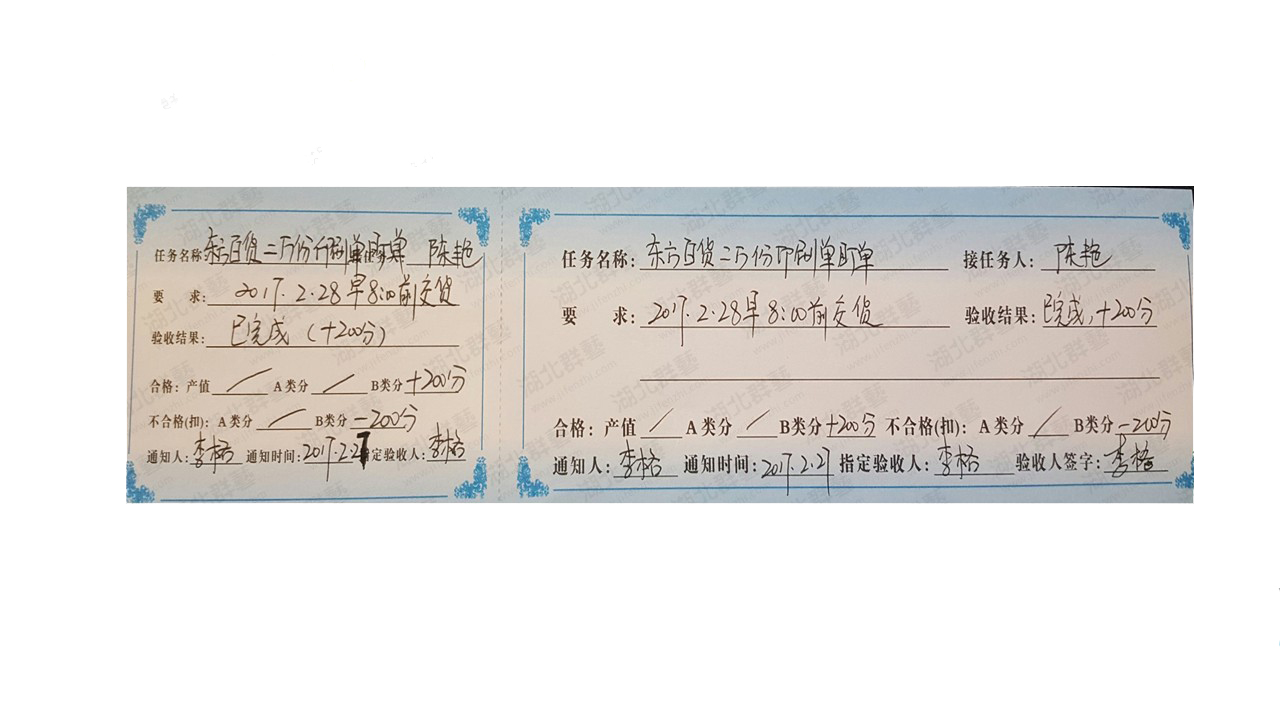 任务名称 东方百货二万份印刷单页单 陈艳
要 求: 2017.2.28早8:00前交货
验收结果: 已完成 (+200分)
合格: 产值 / A类分 / B类分 +200分
不合格(扣): A类分 / B类分 -200分
通知人: 李格 通知时间: 2017.2.27 指定验收人: 李格
任务名称: 东方百货二万份印刷单页单 接任务人: 陈艳
要 求: 2017.2.28早8:00前交货 验收结果: 已完成,+200分
合格: 产值 / A类分 / B类分 +200分 不合格(扣): A类分 / B类分 -200分
通知人: 李格 通知时间: 2017.2.27 指定验收人: 李格 验收人签字: 李格
湖北群藝